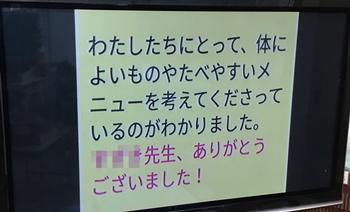 わたしたちにとって、体に
よいものやたべやすいメ
ニューを考えてくださって
いるのがわかりました。
先生、ありがとう
ございました！